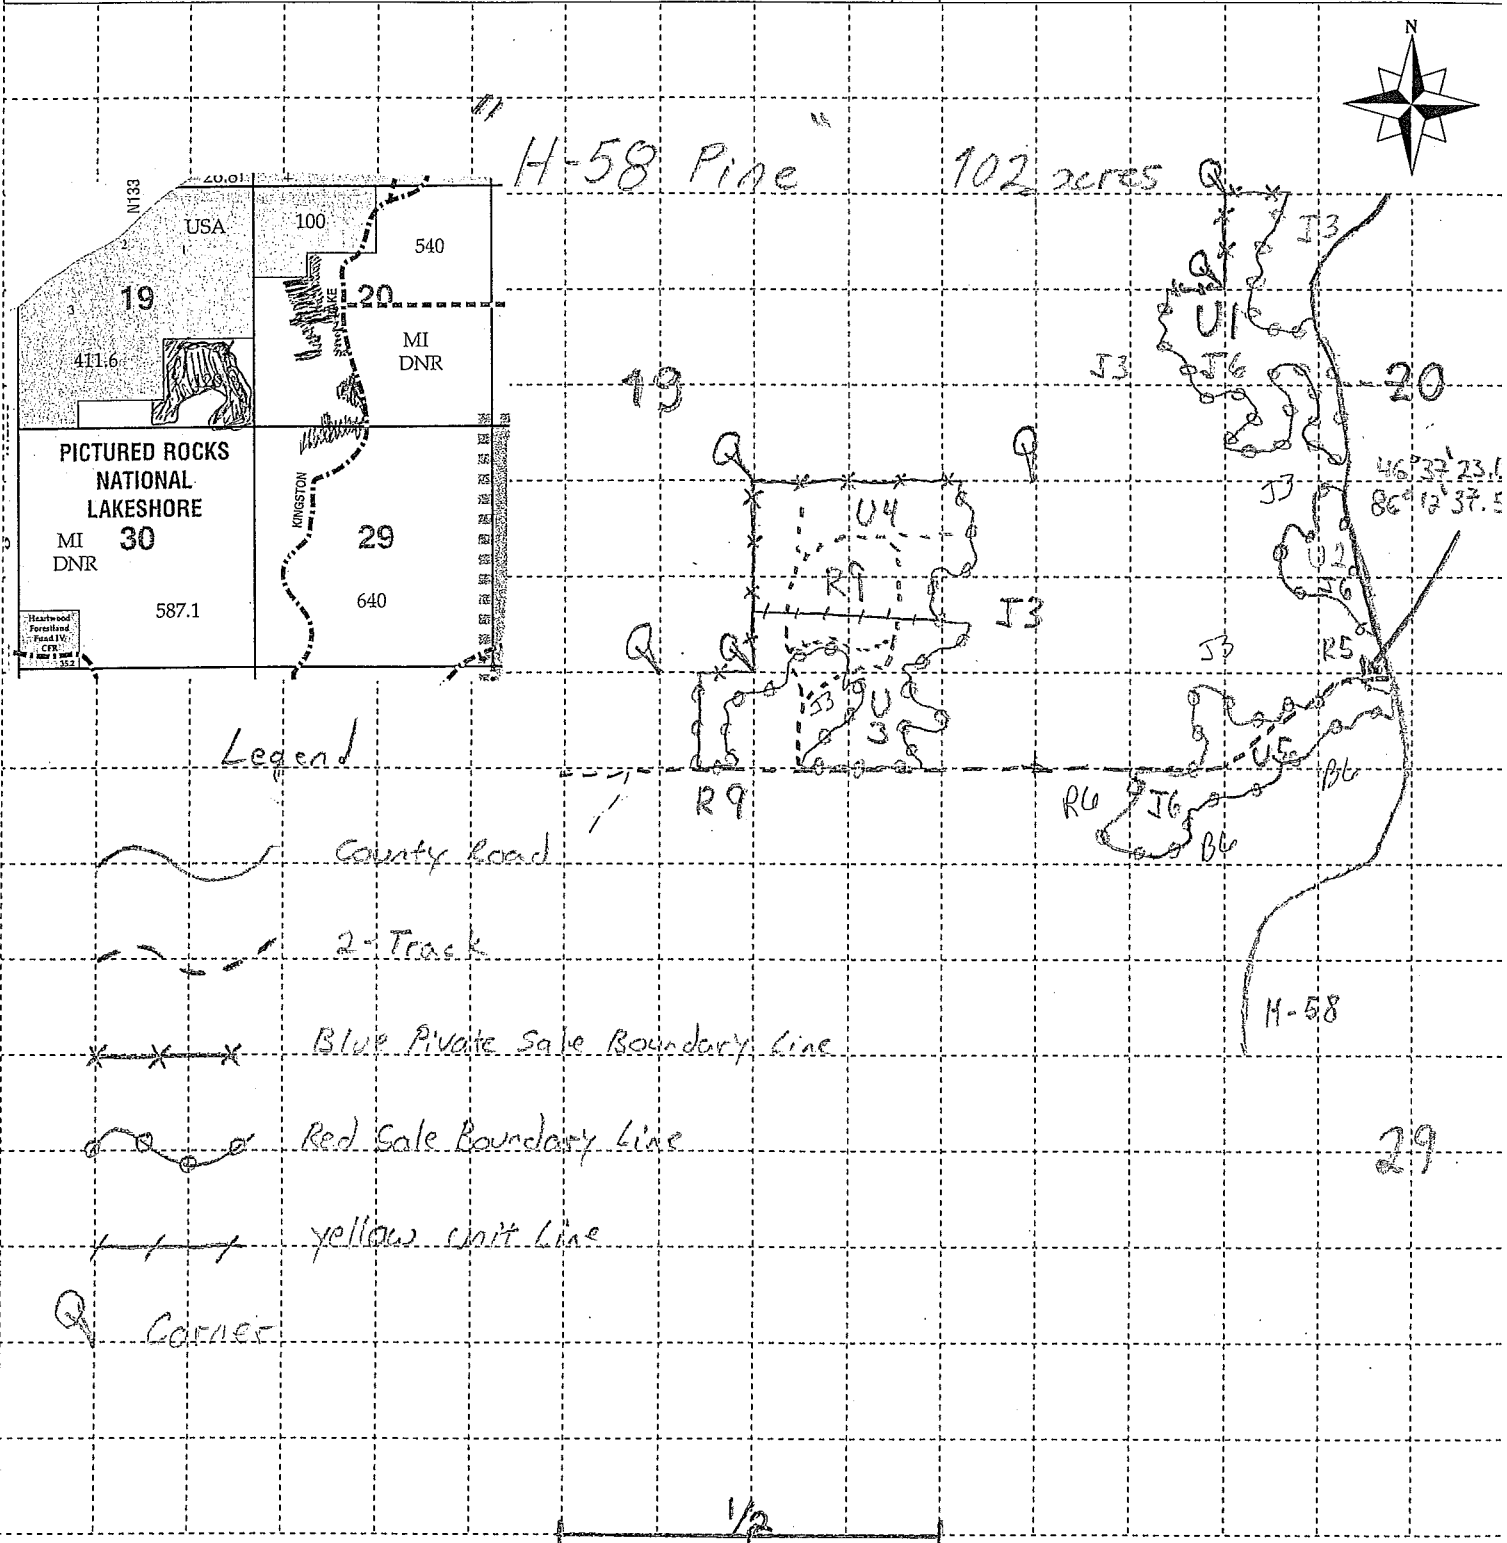 N
"H-58 Pine" 102 acres
N133
20.81
USA
100
540
2
1
19
3
20
LAKE
MI
DNR
411.6
120
PICTURED ROCKS
NATIONAL
LAKESHORE
MI
DNR
30
KINGSTON
29
587.1
640
Heartwood
Forestland
Fund IV
CFR
35.2
Q
J3
Q
U1
J3
J6
19
20
Q
Q
J3
46°37'23.1
86°12'37.5
U4
U2
R9
J6
J3
Q
Q
J3
R5
J3
U
3
U5
R9
R6
J6
B6
B6
H-58
29
Legend
County Road
2-Track
Blue Pivate Sale Boundary Line
Red Sale Boundary Line
yellow Unit Line
Q Corner
1/2